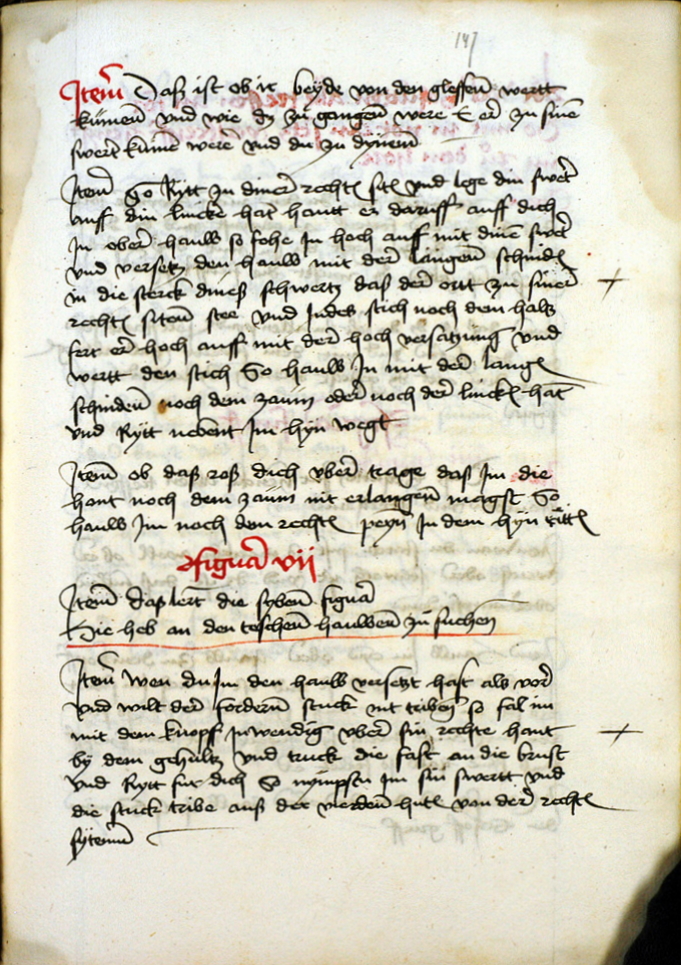 147
Item Daß ist ob ir beyde von den gleffen wertt
kumen vnd wie dz zu gangen were E er zu sine
swert kume were vnd du zu dynem
Item So Rytt zu diner rechte site vnd lege din swert
auff din lincke hant hautt er daruff auff dich
In ober hauw so fohe In hoch auff mit dine swert
vnd versetz den hauw mit der langen schinde
in die sterck dineß schwertz daß der ortt zu siner
rechte siten stee vnd Indes stich noch dem halß
fert er hoch auff mit der hoch versatzung vnd
wertt den stich So hauw In mit der lange
schinden noch dem zaum oder noch der lincke hant
vnd Rytt nebent Im hyn wegk
Item ob daß roß dich vber trage daß Im die
hant noch dem zaum nit erlangen magst So
hauw Im noch dem rechte peyn In dem hyn ritte
Figura vii
Item daß lert die syben figura
Hie heb an den teschen hauwen zu suchen
Item wen du Im den hauw versetzt hast als vor
vnd wilt der fordern stuck nit triben so fal im
mit dem knopf Inwendig vber sin rechte hant
by dem gehultz vnd truck die fast an die brust
vnd Rytt fur dich So nympstu im sin swertt vnd
die stuck tribe auß der vierden hute von der rechte
sytenn